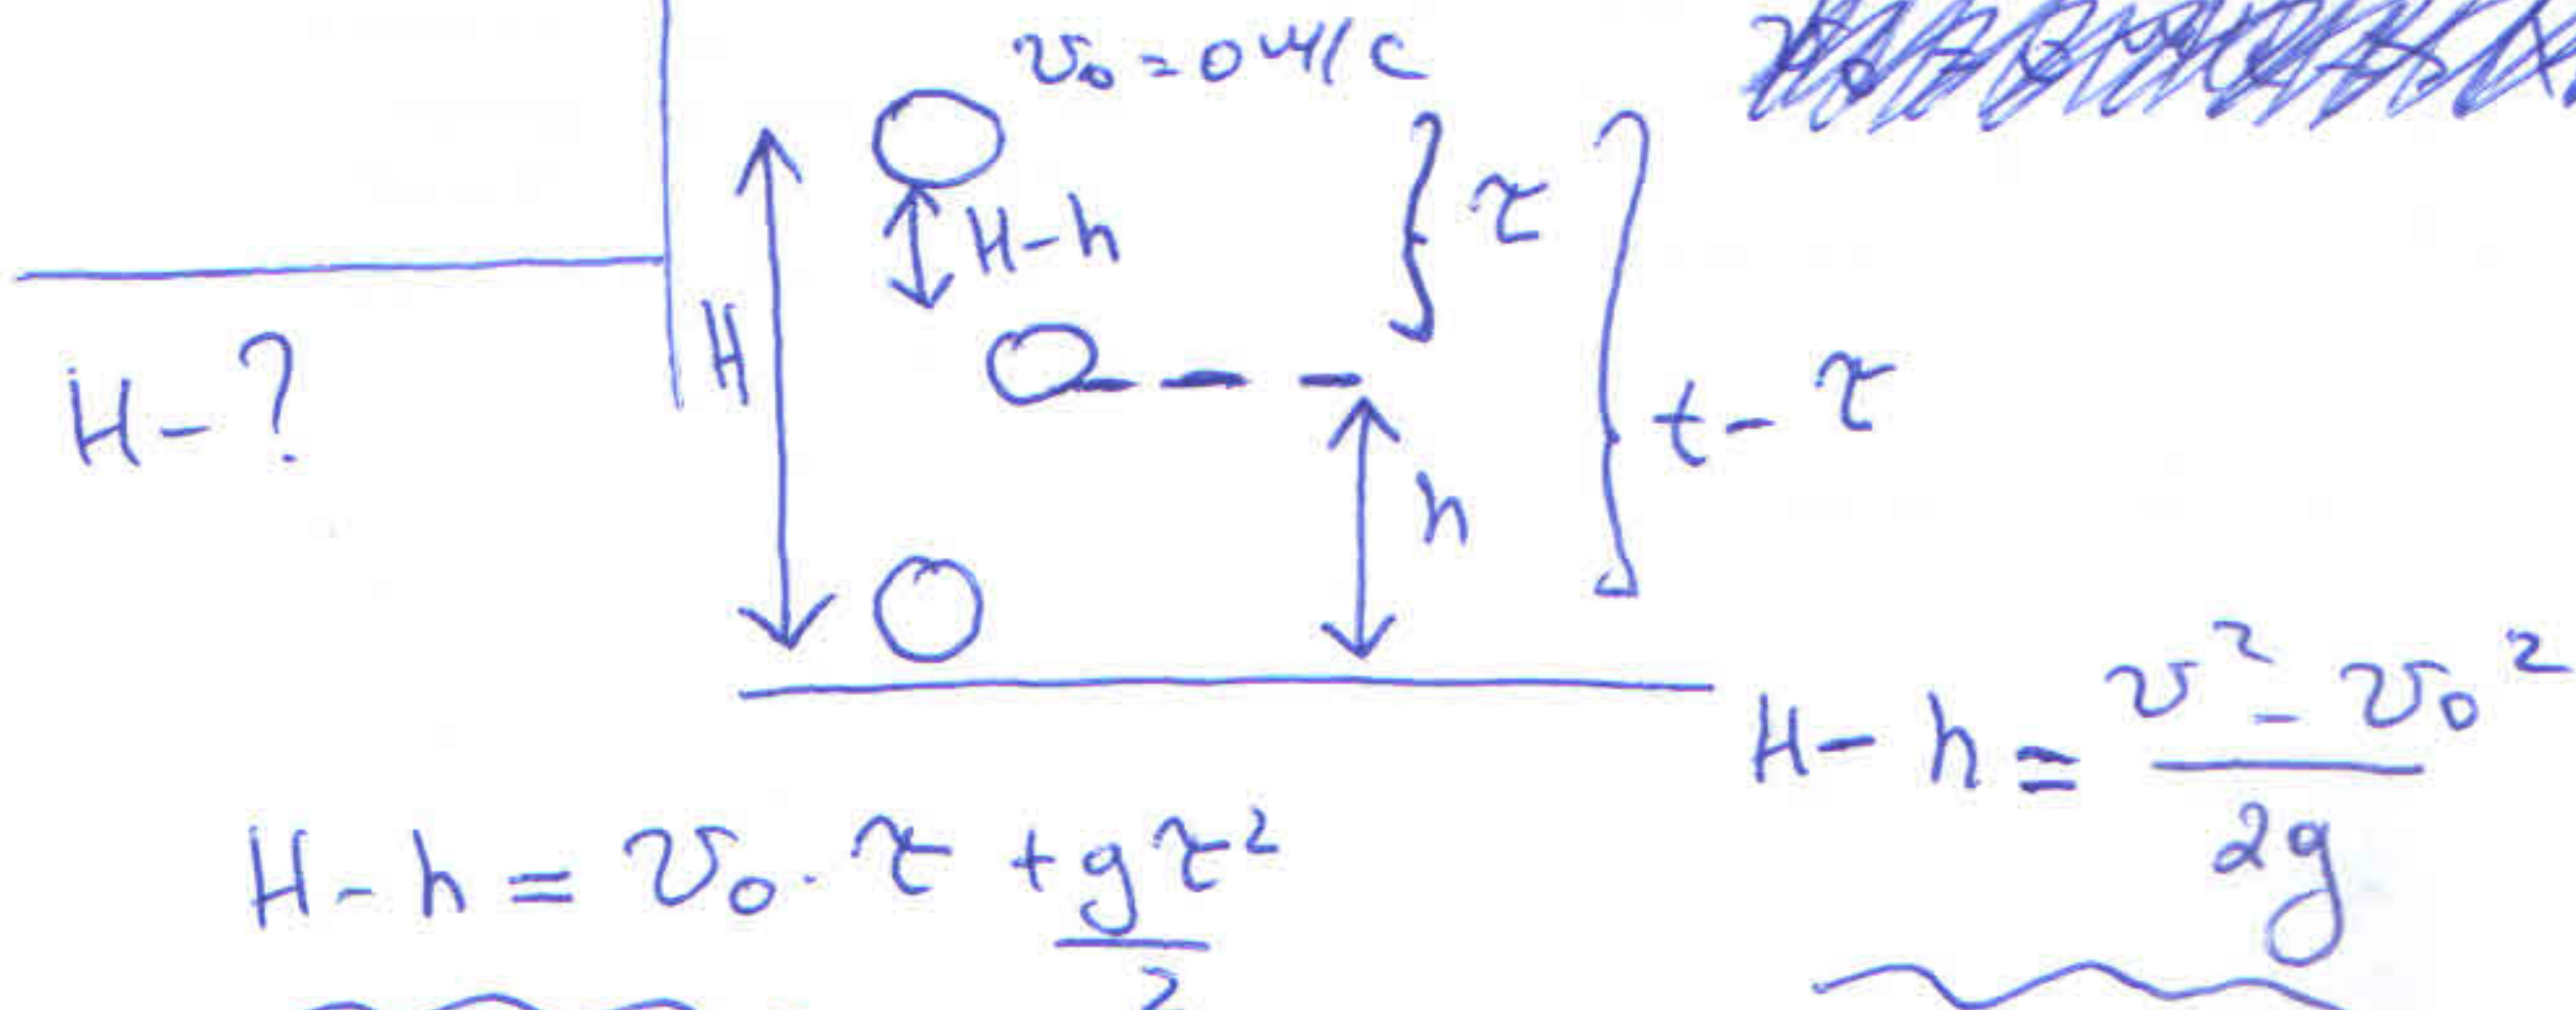 v₀ = 0 м/с
H-h
τ
H
H-?
t-τ
h
H-h = (v² - v₀²)/2g
H-h = v₀·τ + gτ²/2